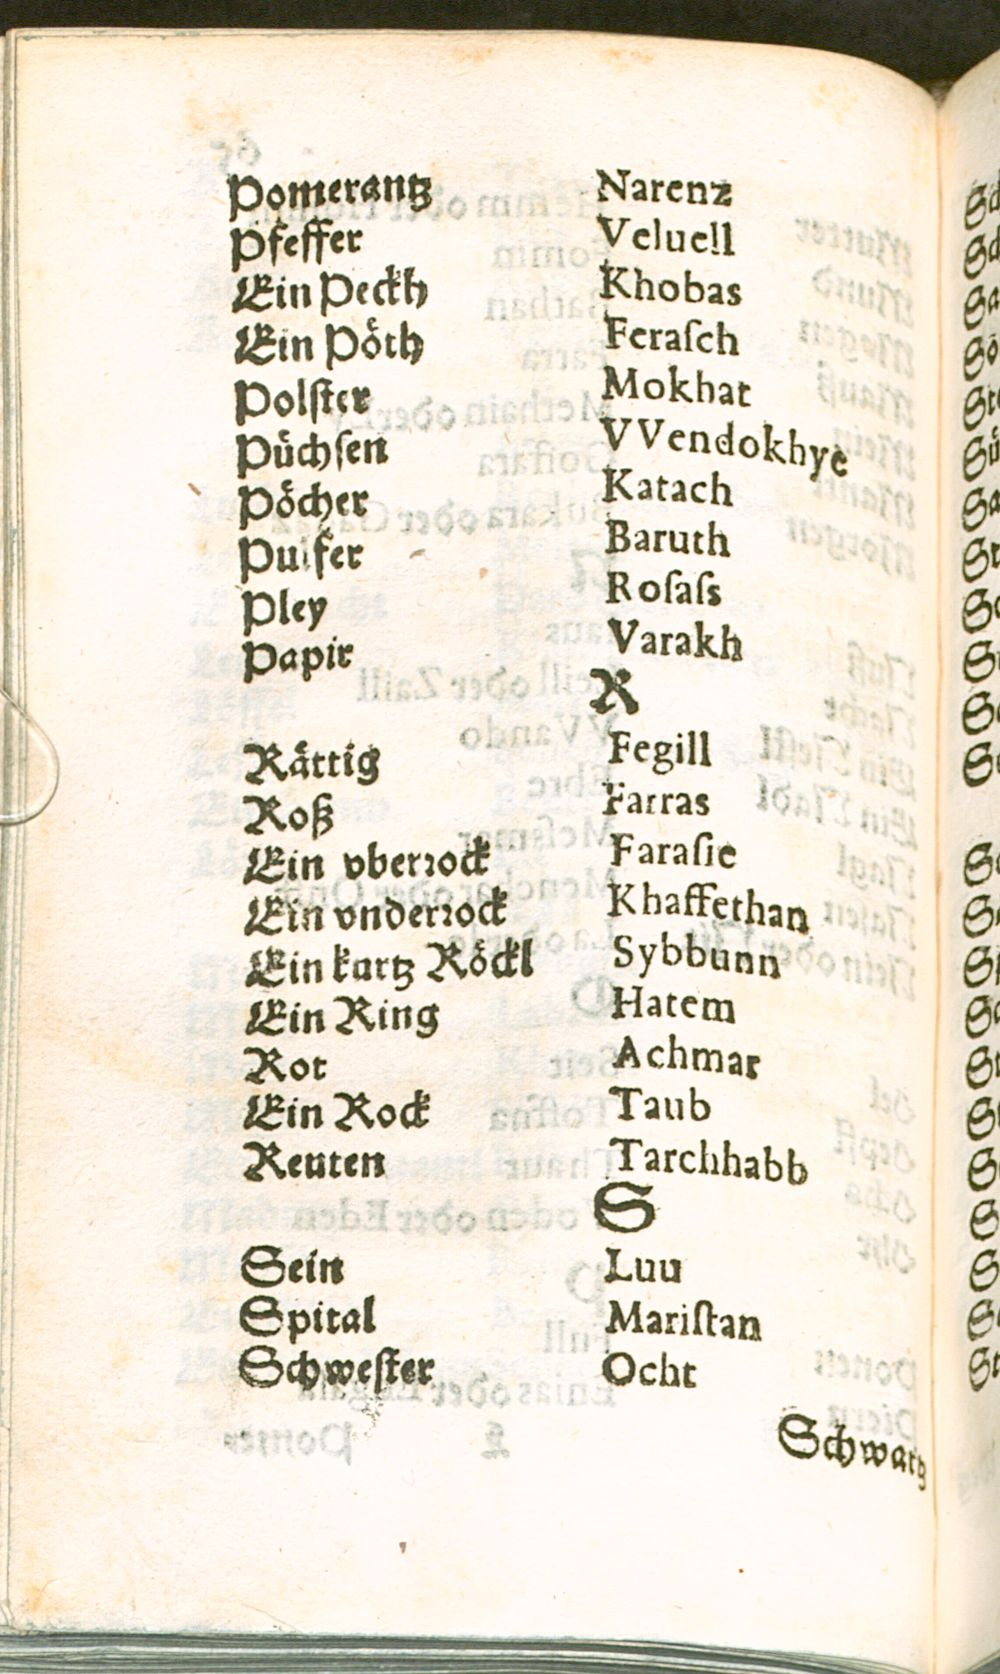 Pomerantz Narenz
Pfeffer Veluell
Ein Peckh Khobas
Ein Pöth Feraſch
Polſter Mokhat
Püchſen VVendokhye
Pöcher Katach
Pulfer Baruth
Pley Roſaſs
Papir Varakh
R
Rättig Fegill
Roß Farras
Ein vberꝛock Faraſie
Ein vnderꝛock Khaffethan
Ein kurtz Röckl Sybbunn
Ein Ring Hatem
Rot Achmar
Ein Rock Taub
Reuten Tarchhabb
S
Sein Luu
Spital Mariſtan
Schweſter Ocht
Schwartz